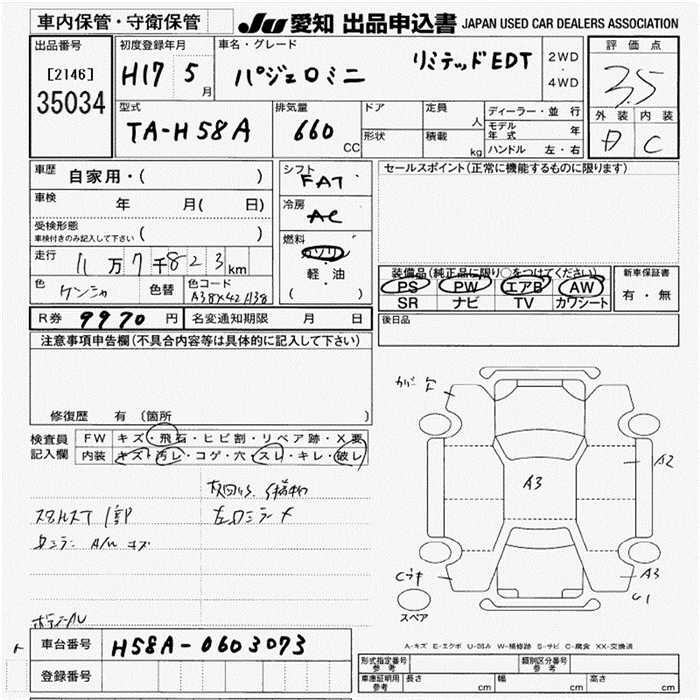 車内保管・守衛保管
JU 愛知 出品申込書 JAPAN USED CAR DEALERS ASSOCIATION
出品番号
[2146]
35034
初度登録年月
H17 5 月
車名・グレード
パジェロミニ リミテッドEDT
2WD
・
4WD
評価点
3.5
外装 内装
D C
型式
TA-H58A
排気量
660 CC
ドア
形状
定員 人
積載 kg
ディーラー・並行
モデル年式 年
ハンドル 左・右
車歴 自家用・( )
車検 年 月( 日)
受検形態
車検付きのみ記入して下さい ( )
走行 11万7千823km
色 色替 色コード
A38X42 H38
シフト
FAT
冷房
AC
燃料
ガソリン
・
軽・油
( )
セールスポイント(正常に機能するものに限ります)
装備品(純正品に限り○をつけてください)
PS PW エアB AW
SR ナビ TV カワシート
新車保証書
有・無
R券 9970 円 名変通知期限 月 日
後日品
注意事項申告欄(不具合内容等は具体的に記入して下さい)
修復歴 有 (箇所 )
検査員記入欄
FW キズ・飛石・ヒビ割・リペア跡・X要
内装 キズ・汚レ・コゲ・穴・スレ・キレ・破レ
A3
A2
A3
スペア
A-キズ E-エクボ U-凹み W-補修跡 S-サビ C-腐食 XX-交換済
車台番号 H58A-0603073
登録番号
形式指定番号 参考
類別区分番号 参考
車庫証明用 参考 長さ cm 幅 cm 高さ cm